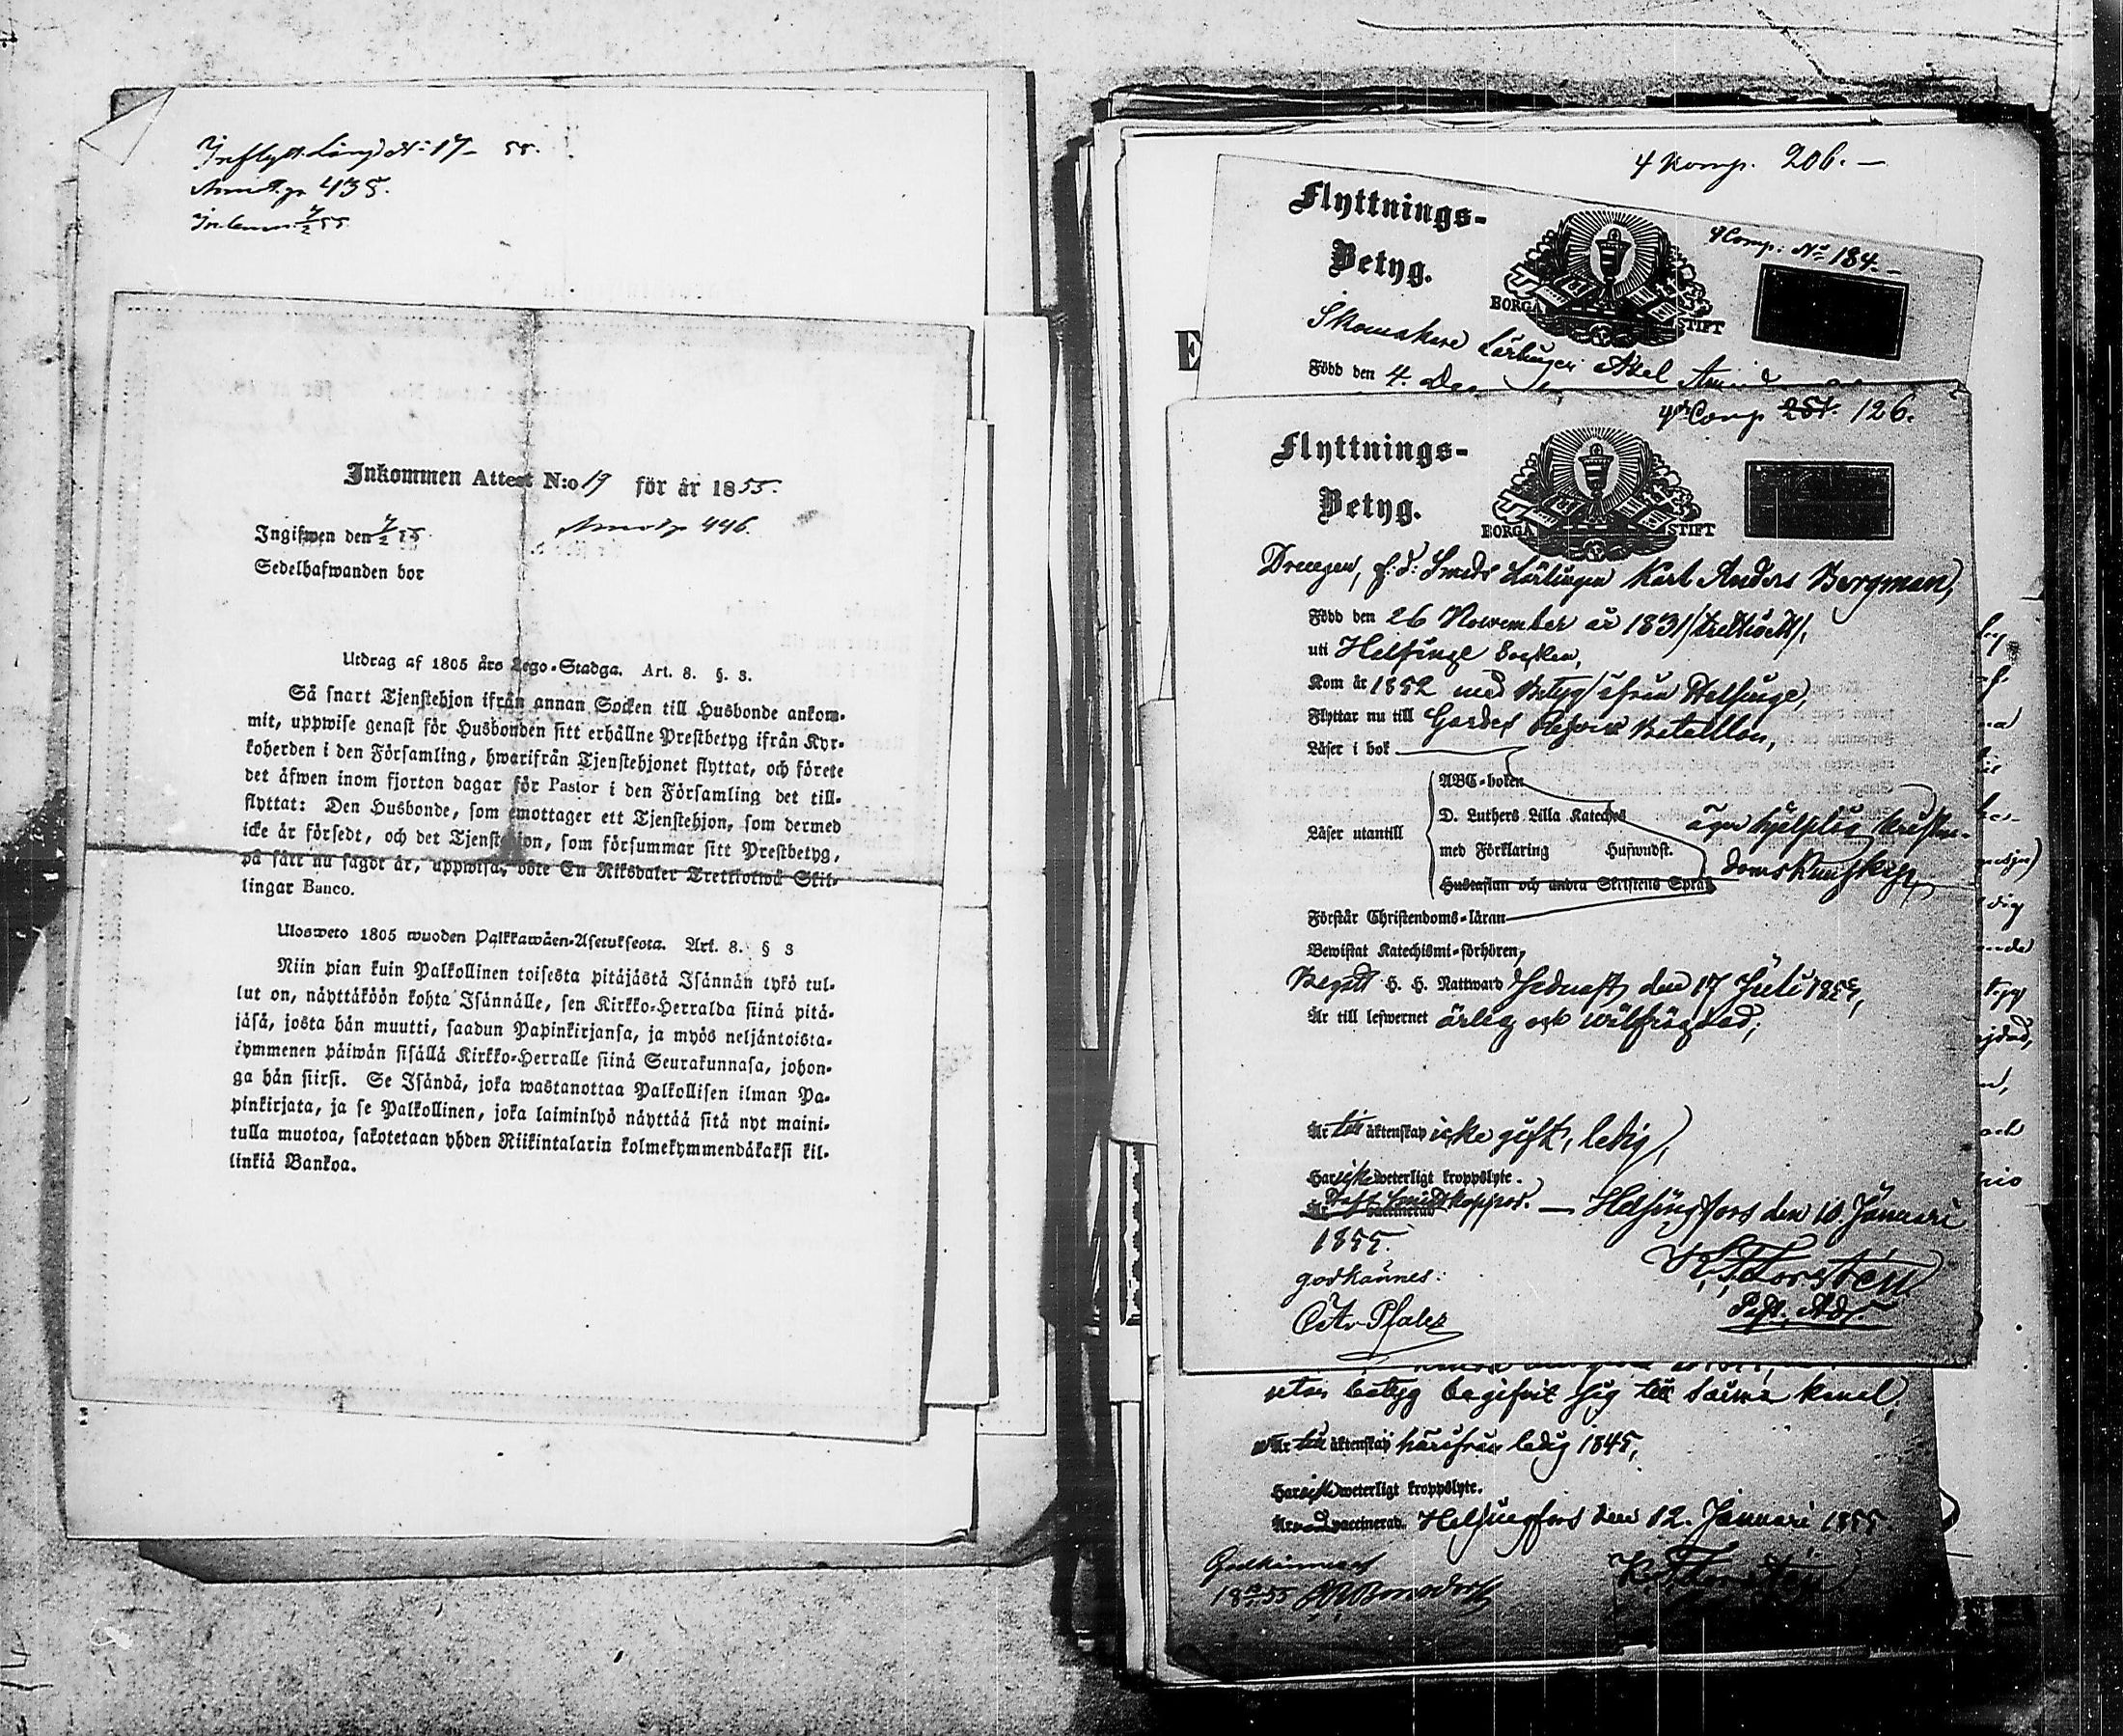 Inflytt. Längd No 17 - 55.
435.
Inkommen Attest N:o 19 för år 1855.
446.
Ingifwen den 7/2 55
Sedelhafwanden bor
Utdrag af 1805 års Lego-Stadga. Art. 8. §. 3.
Så snart Tjenstehjon ifrån annan Socken till Husbonde ankom-
mit, uppwise genast för Husbonden sitt erhållne Prestbetyg ifrån Kyr-
koherden i den Församling, hwarifrån Tjenstehjonet flyttat, och förete
det äfwen inom fjorton dagar för Pastor i den Församling det till-
flyttat: Den Husbonde, som emottager ett Tjenstehjon, som dermed
icke är försedt, och det Tjenstehjon, som försummar sitt Prestbetyg,
på sätt nu sagdt är, uppwisa, böte En Riksdaler Trettiotwå Skil-
lingar Banco.
Ulosweto 1805 wuoden Palkkawäen-Asetuksesta. Art. 8. § 3
Niin pian kuin Palkollinen toisesta pitäjästä Isännän tykö tul-
lut on, näyttäköön kohta Isännälle, sen Kirkko-Herralda siinä pitä-
jäsä, josta hän muutti, saadun Papinkirjansa, ja myös neljäntoista-
kymmenen päiwän sisällä Kirkko-Herralle siinä Seurakunnasa, johon-
ga hän siirsi. Se Isändä, joka wastanottaa Palkollisen ilman Pa-
pinkirjata, ja se Palkollinen, joka laiminlyö näyttää sitä nyt maini-
tulla muotoa, sakotetaan yhden Riikintalarin kolmekymmendäkaksi kil-
linkiä Bankoa.
4 Komp. 206. -
Flyttnings-
Betyg.
4 Comp: No 184. -
BORGÅ STIFT
Skomakare Lärlingen Axel
Född den 4. De
4de Comp 251. 126.
Flyttnings-
Betyg.
BORGÅ STIFT
Drengen, f. d. Smeds Lärlingen Karl Anders Bergman,
Född den 26 November år 1831/trettioett/,
uti Helsinge Socken,
Kom år 1852 med Betyg ifrån Helsinge,
Flyttar nu till Gardes Reserve Bataillon,
Läser i bok
ABC-boken
D. Luthers Lilla Kateches
Läser utantill
med Förklaring Hufwudst.
Hustaflan och andra Skriftens Språk
äger hjelplig kristen-
domskunskap,
Förstår Christendoms-läran
Bewistat Katechismi-förhören,
Begått H. H. Nattward sednast den 17 Juli 1853,
Är till lefwernet ärlig och wälfrägdad,
Är till äktenskap icke gift, ledig,
Har icke weterligt kroppslyte.
Är haft Smittkoppor. vaccinerad - Helsingfors den 10 Januari
1855.
K. F. Forstén
godkännes:
utan betyg begifvit sig till Saima kanal,
Är till äktenskap härifrån ledig 1845,
Har icke weterligt kroppslyte.
Är vaccinerad. Helsingfors den 12. Januari 1855
Godkännes
K. F. Forstén